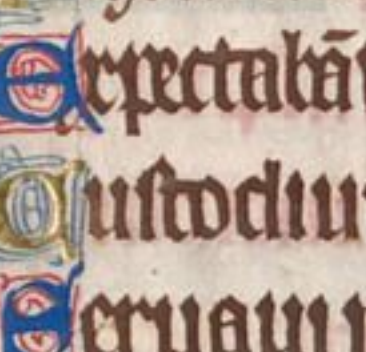 Expectabā
Cuſtodiu
Seruaui